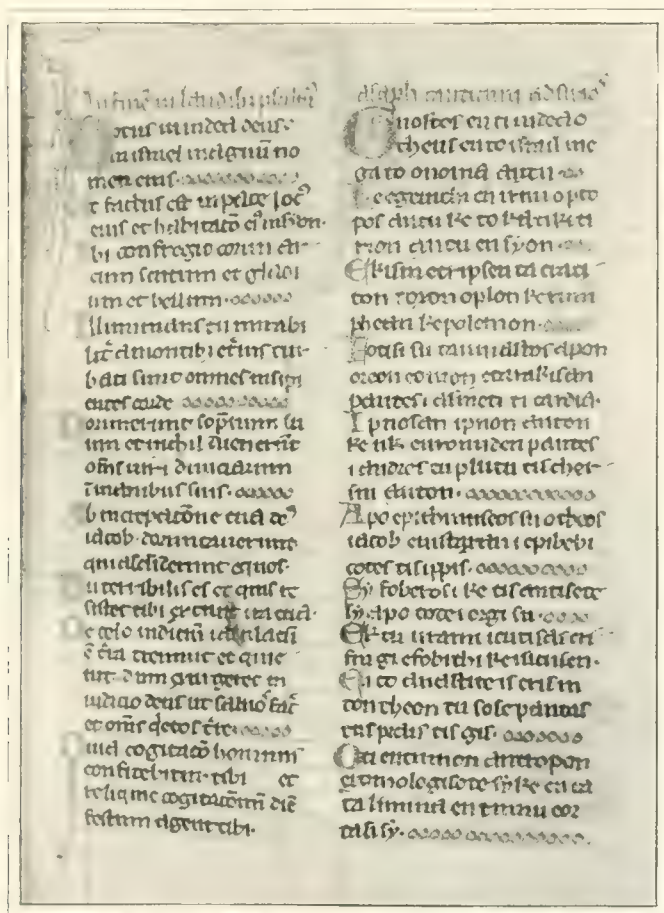 In finē in laudibȝ psalm̄
otus in iudea deus
in israel magnū no
men eius
t factus est in pace loc᷒
eius et habitatō ei᷒ in sion
bi confregit cornu ar
cum scutum et gladi
um et bellum
lluminans tu mirabi
lit᷒ a montibȝ et̄nis tur
bati sunt omnes insipi
entes corde
ormierunt sopnum su
um et nichil inuenerūt
om̄s uiri diuiciarum
ī manibus suis
b increpatōne tua de᷒
iacob dormitauerunt
qui ascēderunt equos
u terribilis es et quis re
sistet tibi ex tunc ira tua
e celo iudiciū
t̄ra tremuit et quie
uit dum exurgeret in
iudicio deus ut saluo᷒ fac̄
et om̄s
uia cogitatō hominis
confitebitur tibi et
reliquie cogitacōnū diē
festum agent tibi
asaph canticum ad
Gnostos en ti iudea o
theus en to israil me
ga to onoma autu
ke egenithi en irini o to
pos autu ke to katikiti
rion autu en syon
Ekisin etripsen ta crati
ton toxon oplon ke rum
phean ke polemon
Fotisi su taumastos apon
oreon eonion etarakisan
pantes i asineti ti cardia
Ipnosan ipnon auton
ke uk euron uden pantes
i andres tu plutu tis cher
sin auton
Apo epithimiseos su o theos
iacob enistaxan i epibebi
cotes tis ippis
Sy foberos i ke tis antisete
sy apo tote i orgi su
Ek tu urani icutisas cri
sin gi efobithi ke isicasen
En to anastite is crisin
ton theon tu sose pantas
tus pedis tis gis
Oti entimion antropon
exomologisete sy ke en ca
ta limina entimiu eor
tasi sy